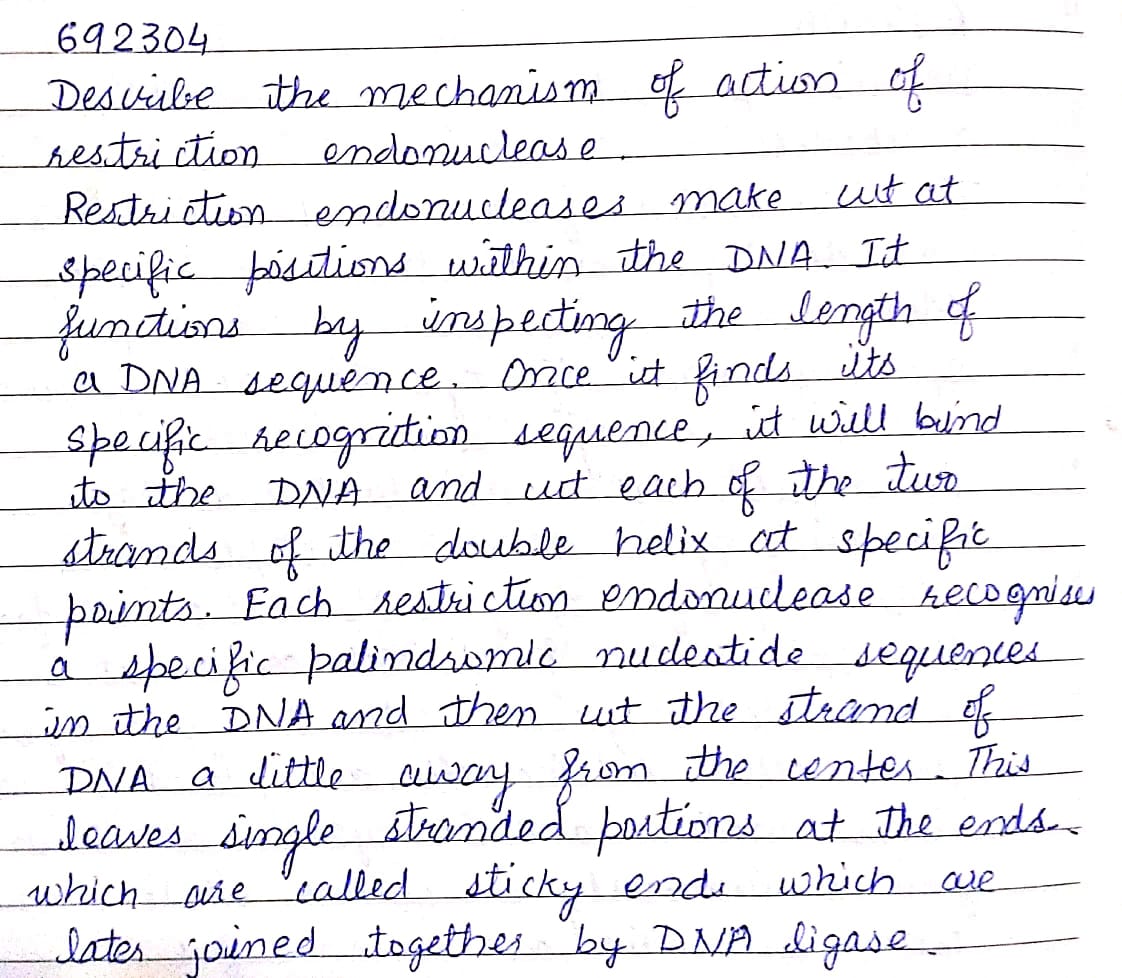 692304
Describe the mechanism of action of
restriction endonuclease.
Restriction endonucleases make cut at
specific positions within the DNA. It
functions by inspecting the length of
a DNA sequence. Once it finds its
specific recognition sequence, it will bind
to the DNA and cut each of the two
strands of the double helix at specific
points. Each restriction endonuclease recognises
a specific palindromic nucleotide sequences
in the DNA and then cut the strand of
DNA a little away from the center. This
leaves single stranded portions at the ends
which are called sticky ends which are
later joined together by DNA ligase.